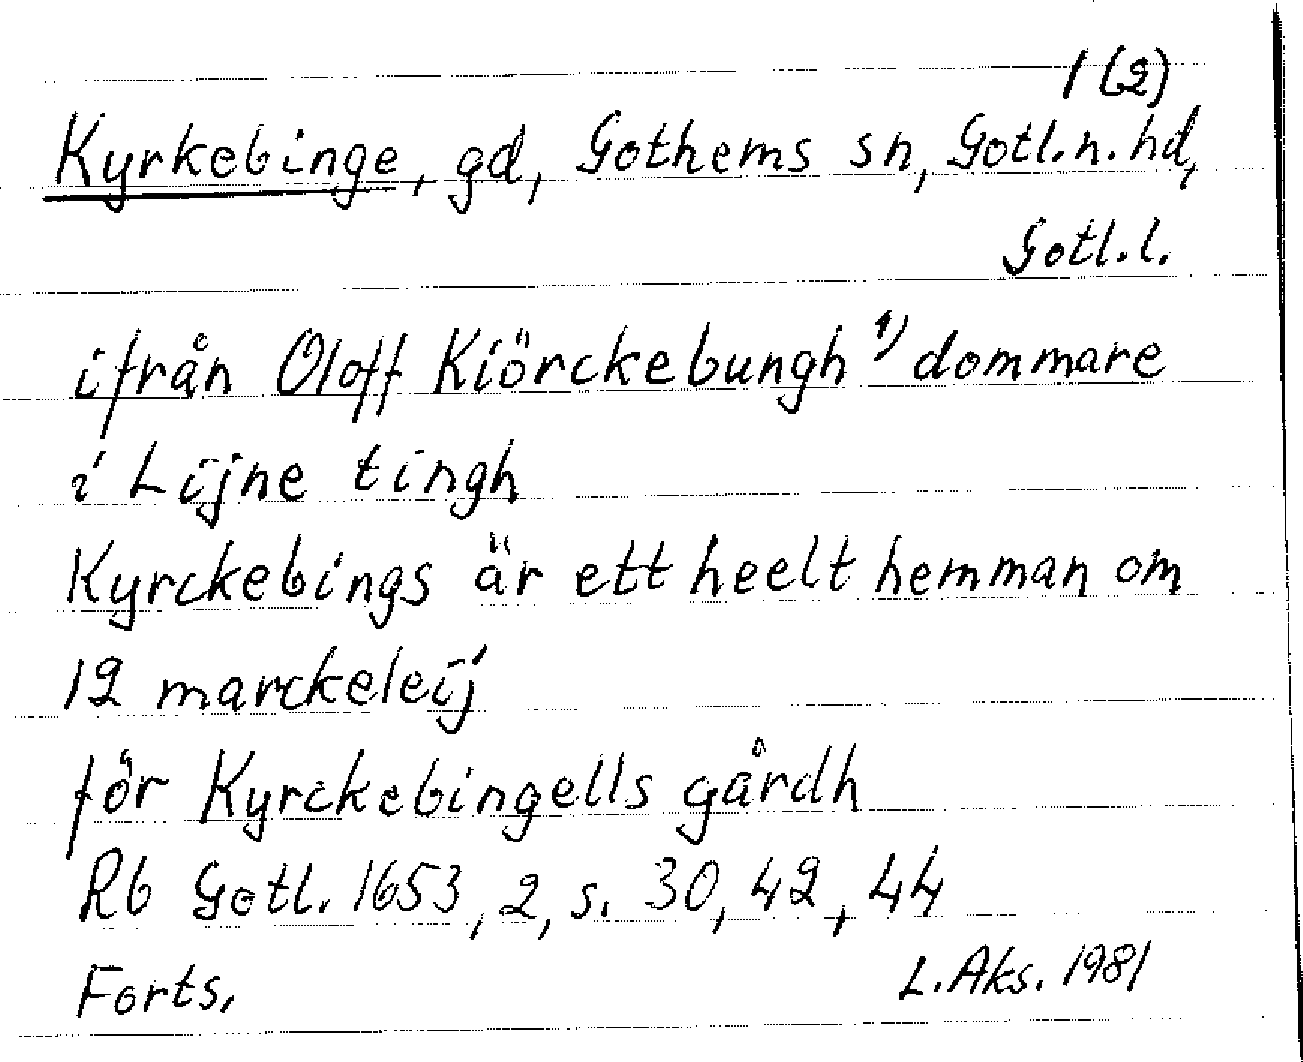 1 (2)
Kyrkebinge, gd, Gothems sn, Gotl.n.hd,
Gotl.l.
ifrån Oloff Kiörckebungh 1) dommare
i Lijne tingh
Kyrckebings är ett heelt hemman om
12 marckeleij
för Kyrckebingells gårdh
Rb Gotl. 1653, 2, s. 30, 42, 44
Forts. L. Aks. 1981